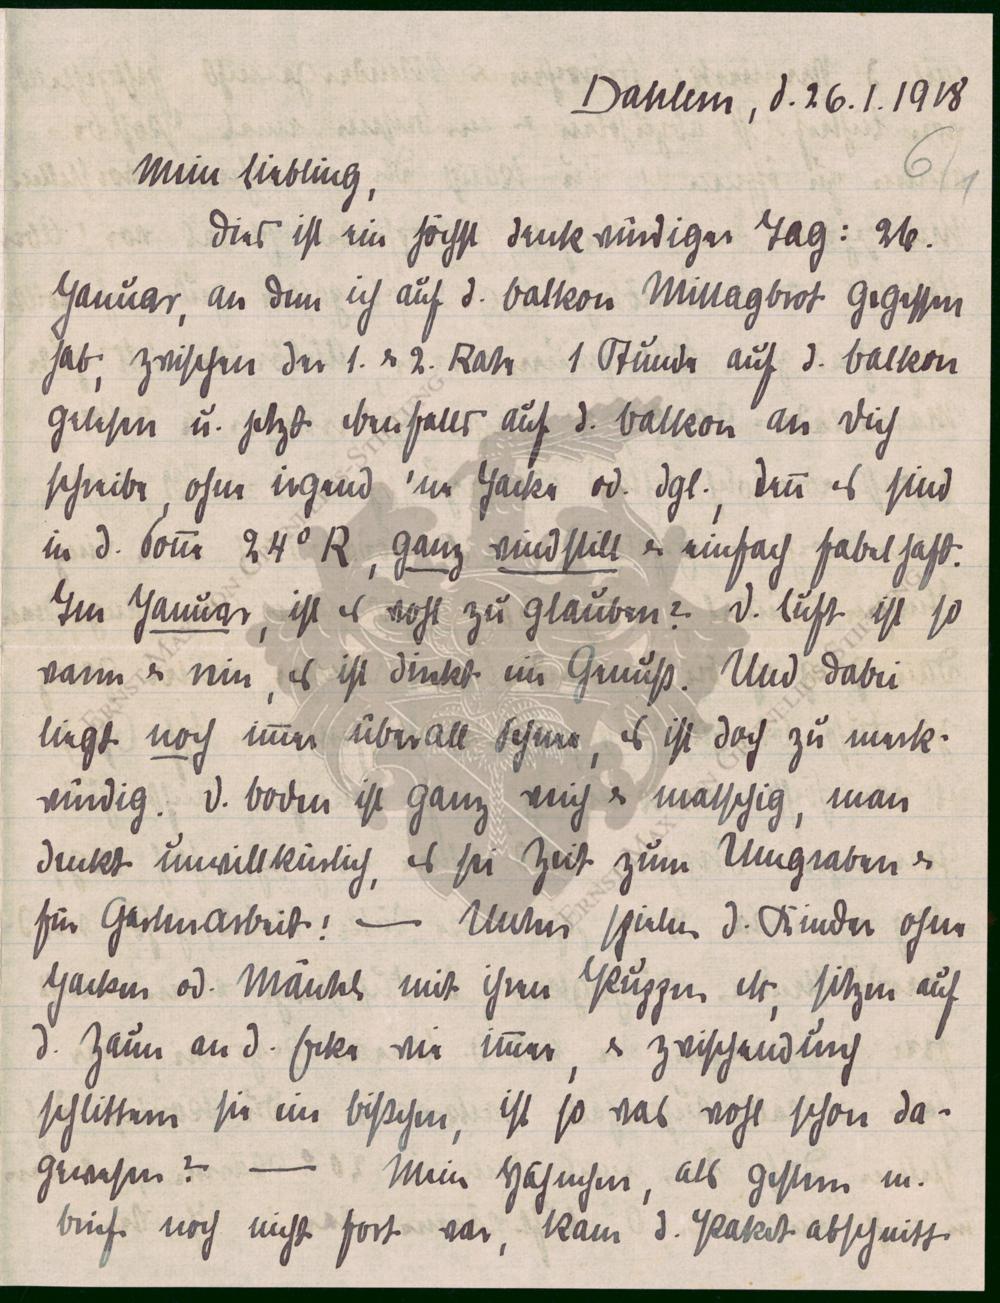 Dahlem, d. 26.1.1918
6/1
Mein Liebling,
Dies ist ein höchst denkwürdiger Tag: 26.
Januar, an dem ich auf d. Balkon Mittagbrot gegessen
hab, zwischen der 1. & 2. Rate 1 Stunde auf d. Balkon
gelesen u. jetzt ebenfalls auf d. Balkon an Dich
schreibe, ohne irgend 'ne Jacke od. dgl., den̄ es sind
in d. Son̄e 24° R, ganz windstill & einfach fabelhaft.
Im Januar, ist es wohl zu glauben? D. Luft ist so
warm & rein, es ist direkt ein Genuß. Und dabei
liegt noch im̄er überall Schnee, es ist doch zu merk-
würdig. D. Boden ist ganz weich & matschig, man
denkt unwillkürlich, es sei Zeit zum Umgraben &
für Gartenarbeit! — Unten spielen d. Kinder ohne
Jacken od. Mäntel mit ihren Puppen etc, sitzen auf
d. Zaun an d. Ecke wie im̄er, & zwischendurch
schlittern sie ein bißchen, ist so was wohl schon da-
gewesen? — Mein Hähnchen, als gestern m.
Brief noch nicht fort war, kam d. Paketabschnitt